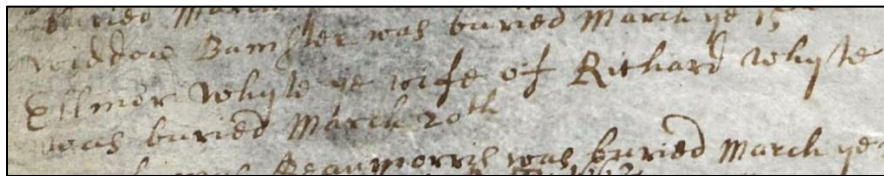 buried March
widdow Bumster was buried March ye 15
Ellinor Whyte ye wife of Richard Whyte
was buried March 20th
Beaumorris was buried March ye